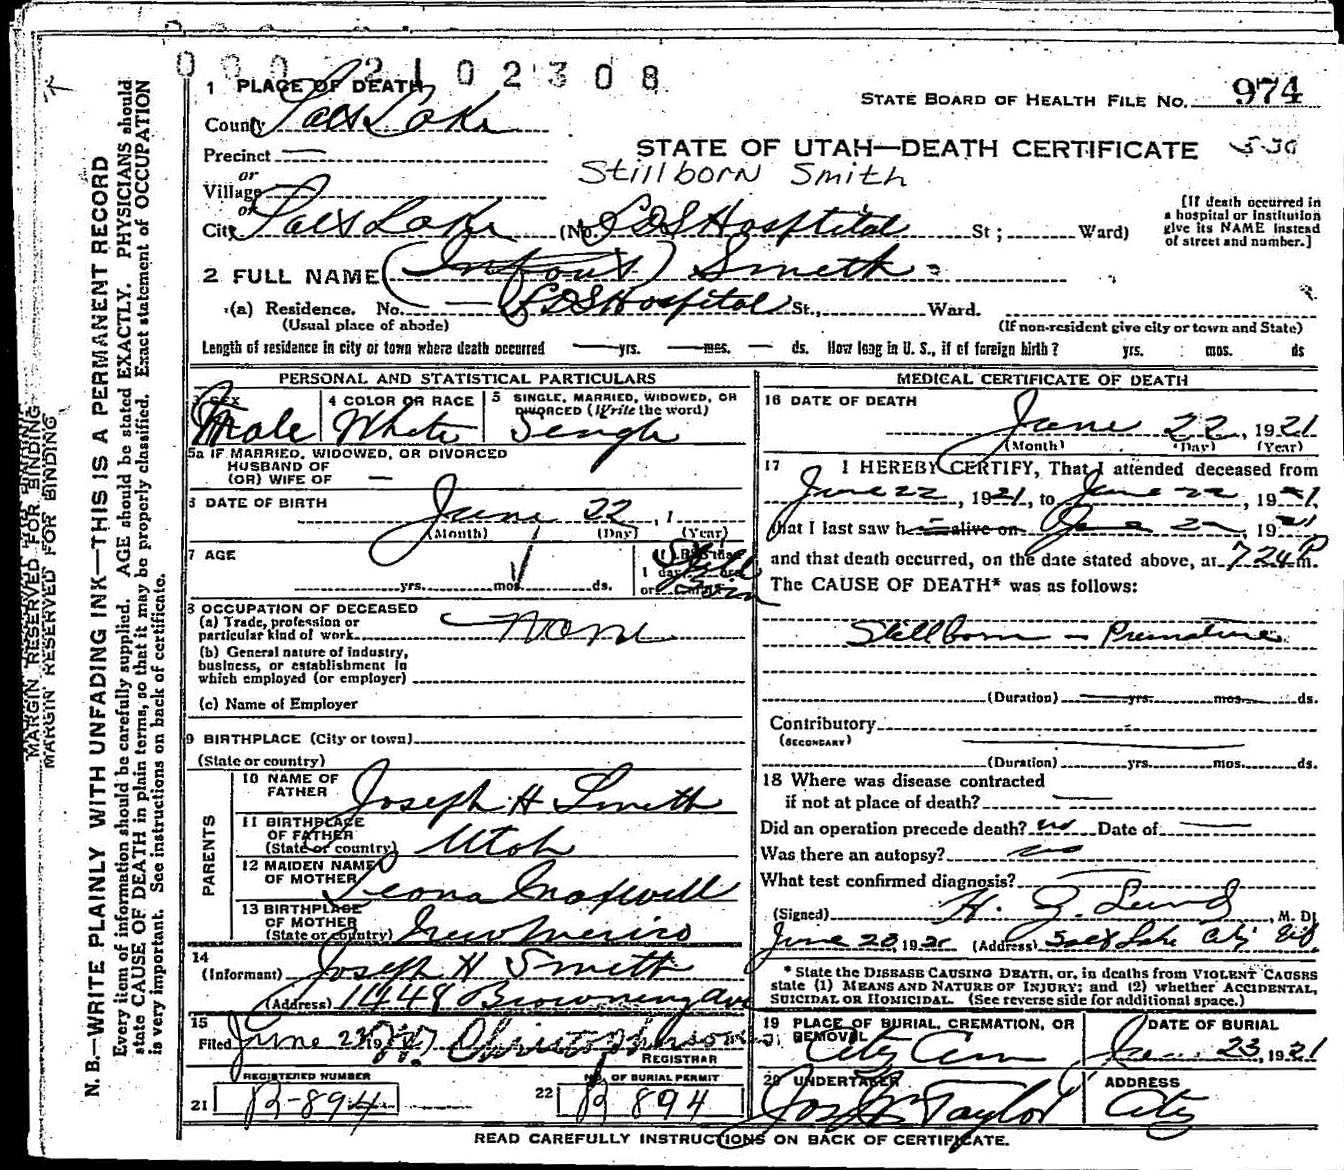 0002102308
1 PLACE OF DEATH
County Salt Lake
STATE BOARD OF HEALTH FILE No. 974
Precinct —
or
Village
or
STATE OF UTAH—DEATH CERTIFICATE
Stillborn Smith
City Salt Lake (No. LDS Hospital St; Ward)
[If death occurred in
a hospital or institution
give its NAME instead
of street and number.]
2 FULL NAME (Infant) Smith
(a) Residence. No. — LDS Hospital St., Ward.
(Usual place of abode) (If non-resident give city or town and State)
Length of residence in city or town where death occurred — yrs. — mos. — ds. How long in U. S., if of foreign birth? yrs. mos. ds
PERSONAL AND STATISTICAL PARTICULARS
3 SEX Male
4 COLOR OR RACE White
5 SINGLE, MARRIED, WIDOWED, OR
DIVORCED (Write the word)
Single
5a IF MARRIED, WIDOWED, OR DIVORCED
HUSBAND OF
(OR) WIFE OF —
6 DATE OF BIRTH June 22, 1
(Month) (Day) (Year)
7 AGE
yrs. mos. ds.
Still
born
8 OCCUPATION OF DECEASED
(a) Trade, profession or
particular kind of work None
(b) General nature of industry,
business, or establishment in
which employed (or employer)
(c) Name of Employer
9 BIRTHPLACE (City or town)
(State or country)
PARENTS
10 NAME OF
FATHER Joseph H Smith
11 BIRTHPLACE
OF FATHER
(State or country) Utah
12 MAIDEN NAME
OF MOTHER Leona Maxwell
13 BIRTHPLACE
OF MOTHER
(State or country) New Mexico
14
(Informant) Joseph H Smith
(Address) 1448 Browning Ave
15
Filed June 23 19
REGISTRAR
REGISTERED NUMBER
21 B-894
No. OF BURIAL PERMIT
22 B 894
MEDICAL CERTIFICATE OF DEATH
16 DATE OF DEATH
June 22, 1921
(Month) (Day) (Year)
17 I HEREBY CERTIFY, That I attended deceased from
June 22, 1921, to June 22, 1921,
that I last saw h alive on June 22, 1921
and that death occurred, on the date stated above, at 7 24 P m.
The CAUSE OF DEATH* was as follows:
Stillborn — Premature
(Duration) yrs. mos. ds.
Contributory
(SECONDARY)
(Duration) yrs. mos. ds.
18 Where was disease contracted
if not at place of death? —
Did an operation precede death? no Date of —
Was there an autopsy? no
What test confirmed diagnosis?
(Signed) H. Z. Lund, M. D.
June 23, 1921 (Address) Salt Lake City
* State the DISEASE CAUSING DEATH, or, in deaths from VIOLENT CAUSES
state (1) MEANS AND NATURE OF INJURY; and (2) whether ACCIDENTAL,
SUICIDAL OR HOMICIDAL. (See reverse side for additional space.)
19 PLACE OF BURIAL, CREMATION, OR
REMOVAL
City Cem
DATE OF BURIAL
June 23, 1921
20 UNDERTAKER
Jos Wm Taylor
ADDRESS
City
READ CAREFULLY INSTRUCTIONS ON BACK OF CERTIFICATE.
MARGIN RESERVED FOR BINDING
MARGIN RESERVED FOR BINDING
N. B.—WRITE PLAINLY WITH UNFADING INK—THIS IS A PERMANENT RECORD
Every item of information should be carefully supplied. AGE should be stated EXACTLY. PHYSICIANS should
state CAUSE OF DEATH in plain terms, so that it may be properly classified. Exact statement of OCCUPATION
is very important. See instructions on back of certificate.